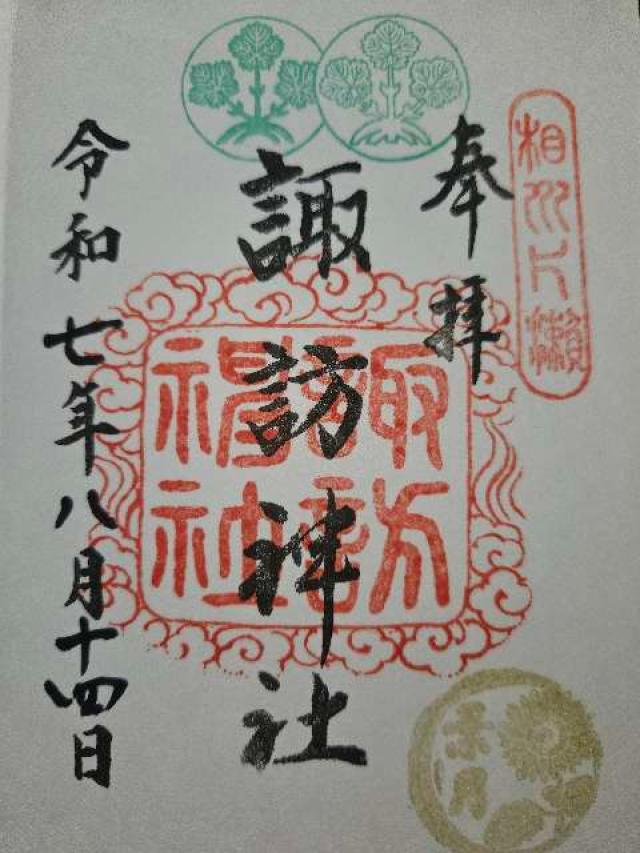 相州片瀬
奉拝
諏訪神社
諏訪
神社
令和七年八月十四日
葉月